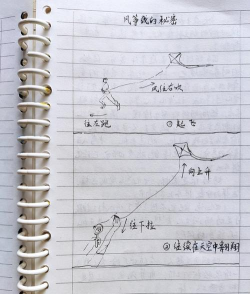 风筝线的秘密
风往右吹
往左跑
①起飞
向上升
往下拉
②持续在天空中翱翔